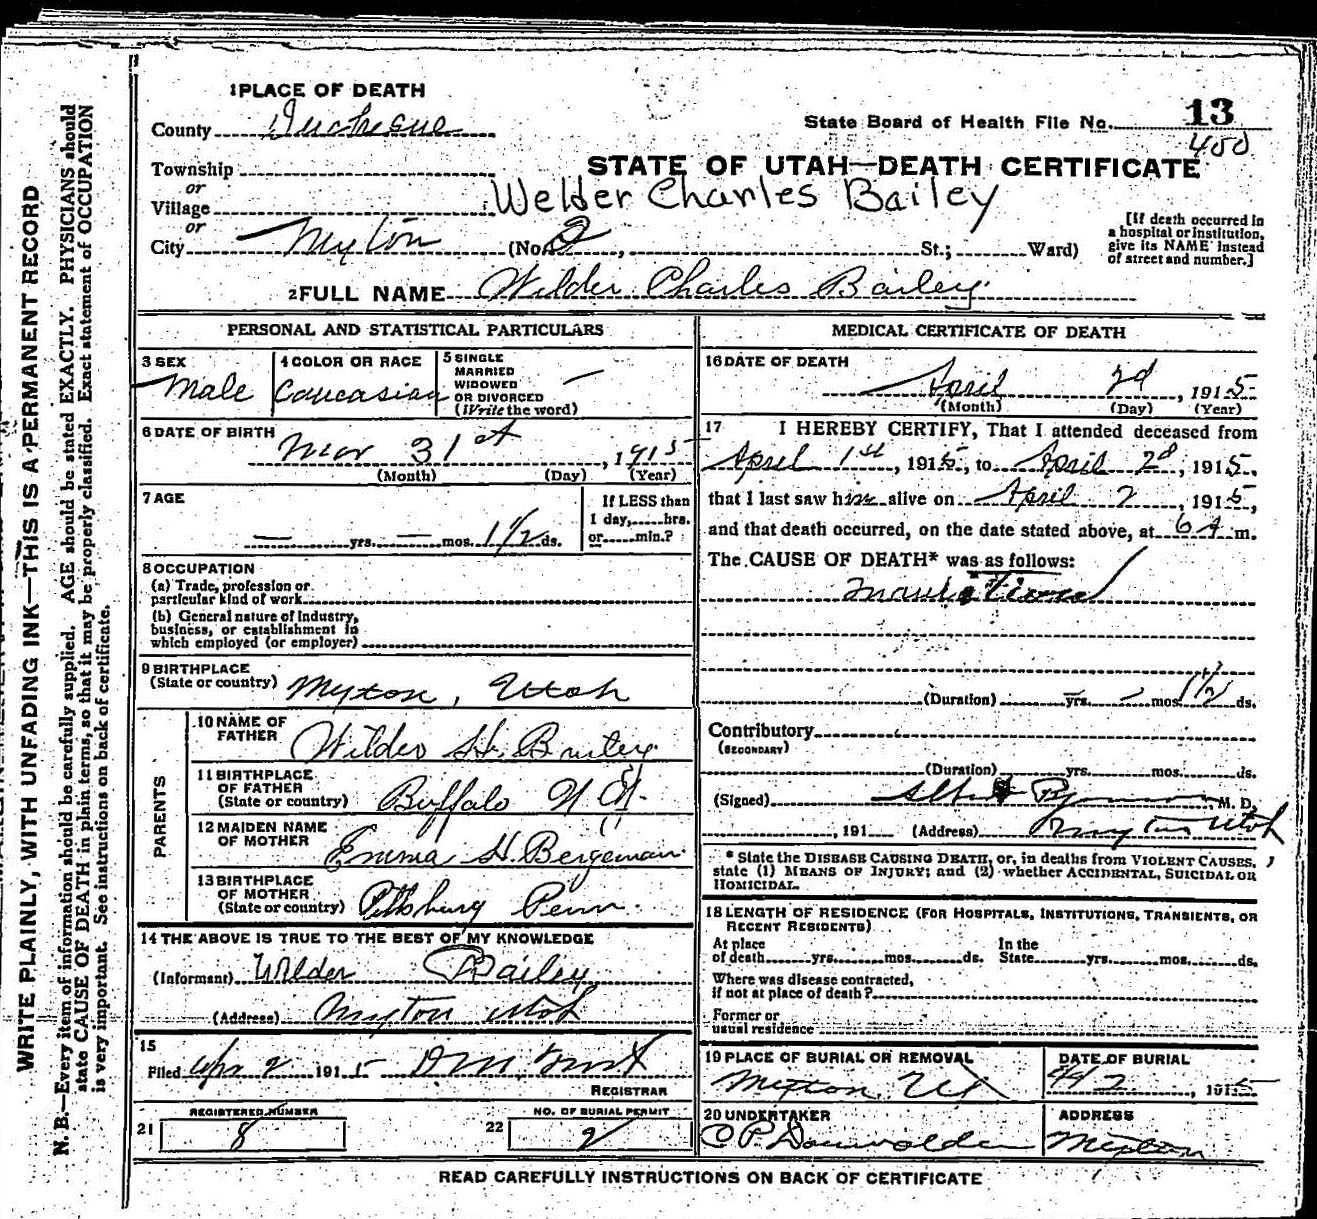 1 PLACE OF DEATH
County Duchesne
State Board of Health File No. 13
400
Township
or
STATE OF UTAH—DEATH CERTIFICATE
Village
Welder Charles Bailey
or
City Myton (No. 2, St.; Ward)
[If death occurred in
a hospital or institution,
give its NAME instead
of street and number.]
2 FULL NAME Wilder Charles Bailey.
PERSONAL AND STATISTICAL PARTICULARS
3 SEX
Male
4 COLOR OR RACE
Caucasian
5 SINGLE
MARRIED
WIDOWED
OR DIVORCED
(Write the word)
—
6 DATE OF BIRTH
Mar 31st, 1915
(Month) (Day) (Year)
7 AGE
— yrs. — mos. 1 1/2 ds.
If LESS than
1 day, hrs.
or min.?
8 OCCUPATION
(a) Trade, profession or
particular kind of work
(b) General nature of Industry,
business, or establishment in
which employed (or employer)
9 BIRTHPLACE
(State or country) Myton, Utah
PARENTS
10 NAME OF
FATHER
Wilder H. Bailey.
11 BIRTHPLACE
OF FATHER
(State or country) Buffalo N.Y.
12 MAIDEN NAME
OF MOTHER
Emma H. Bergeman.
13 BIRTHPLACE
OF MOTHER
(State or country) Pittsburg Penn.
14 THE ABOVE IS TRUE TO THE BEST OF MY KNOWLEDGE
(Informant) Wilder Bailey
(Address) Myton Utah
15
Filed Apr 2 1915
REGISTRAR
REGISTERED NUMBER
21 8
NO. OF BURIAL PERMIT
22 2
MEDICAL CERTIFICATE OF DEATH
16 DATE OF DEATH
April 2d, 1915
(Month) (Day) (Year)
17 I HEREBY CERTIFY, That I attended deceased from
April 1st, 1915, to April 2d, 1915,
that I last saw him alive on April 2, 1915,
and that death occurred, on the date stated above, at 6 A m.
The CAUSE OF DEATH* was as follows:
(Duration) — yrs. — mos. 1 1/2 ds.
Contributory
(SECONDARY)
(Duration) yrs. mos. ds.
(Signed) M. D.
, 191 (Address) Myton Utah
* State the DISEASE CAUSING DEATH, or, in deaths from VIOLENT CAUSES,
state (1) MEANS OF INJURY; and (2) whether ACCIDENTAL, SUICIDAL OR
HOMICIDAL.
18 LENGTH OF RESIDENCE (FOR HOSPITALS, INSTITUTIONS, TRANSIENTS, OR
RECENT RESIDENTS)
At place
of death yrs. mos. ds.
In the
State yrs. mos. ds.
Where was disease contracted,
if not at place of death?
Former or
usual residence
19 PLACE OF BURIAL OR REMOVAL
Myton, Ut
DATE OF BURIAL
4/2, 1915
20 UNDERTAKER
C P
ADDRESS
Myton
READ CAREFULLY INSTRUCTIONS ON BACK OF CERTIFICATE
WRITE PLAINLY, WITH UNFADING INK—THIS IS A PERMANENT RECORD
N. B.—Every item of information should be carefully supplied. AGE should be stated EXACTLY. PHYSICIANS should
state CAUSE OF DEATH in plain terms, so that it may be properly classified. Exact statement of OCCUPATION
is very important. See instructions on back of certificate.